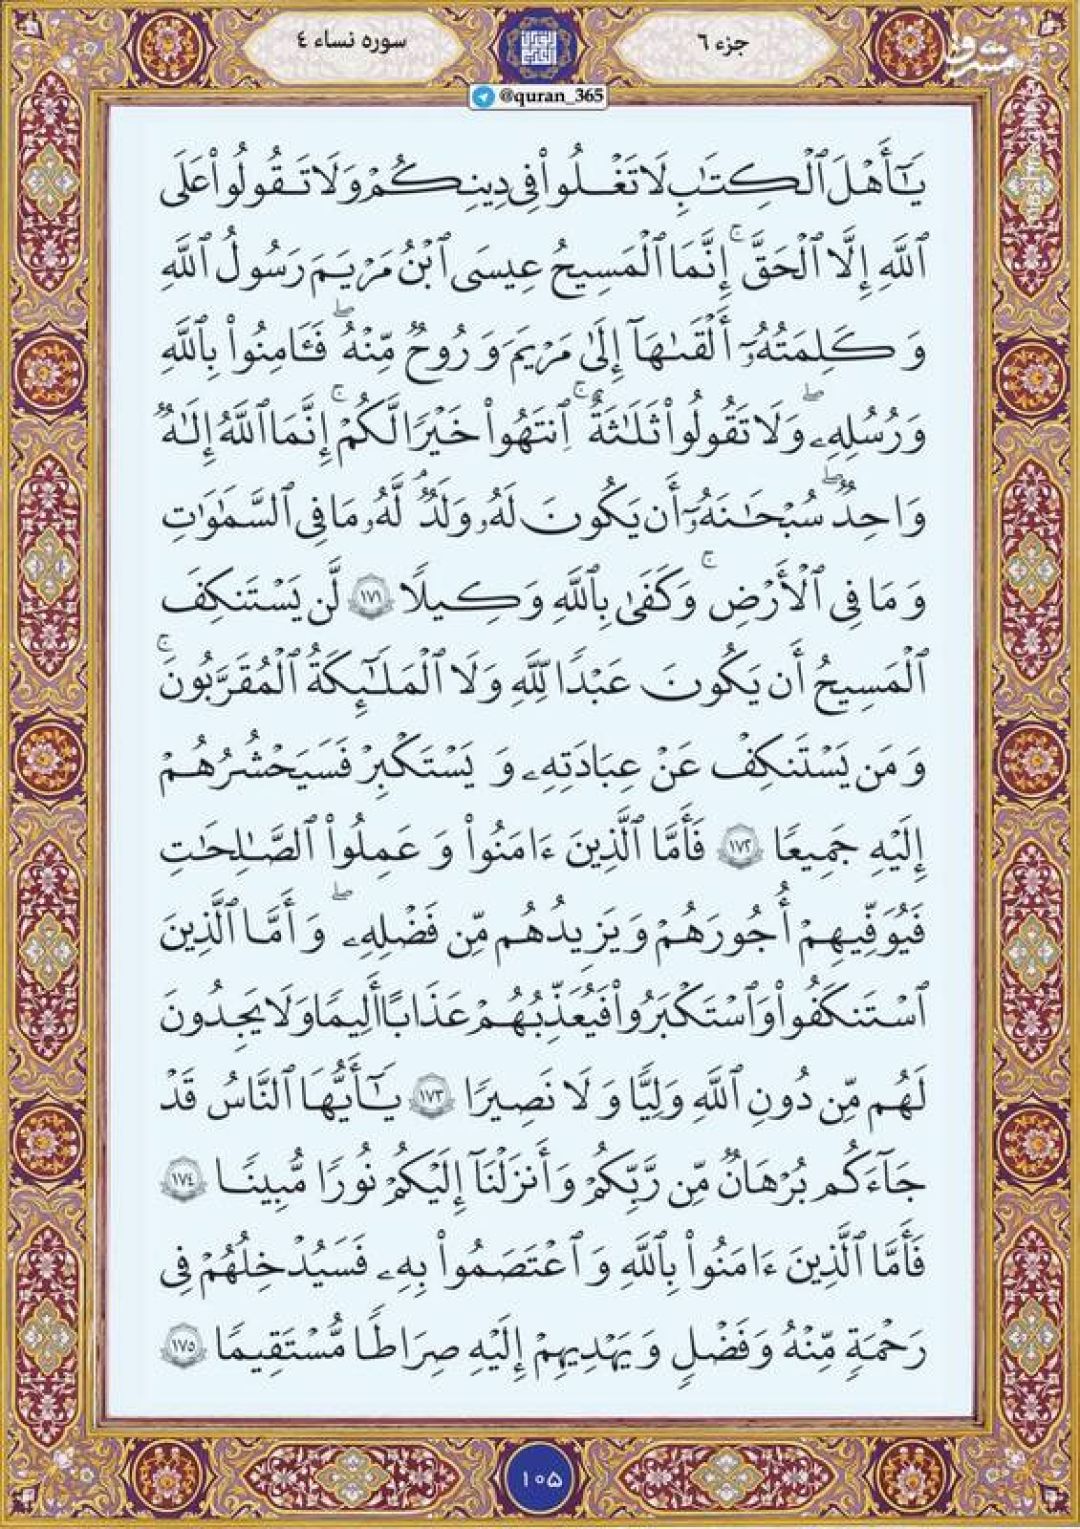 سوره نساء ٤
جزء ٦
@quran_365
مشرق
mashreghnews.ir
يَـٰٓأَهْلَ ٱلْكِتَـٰبِ لَا تَغْلُوا۟ فِى دِينِكُمْ وَلَا تَقُولُوا۟ عَلَى
ٱللَّهِ إِلَّا ٱلْحَقَّ ۚ إِنَّمَا ٱلْمَسِيحُ عِيسَى ٱبْنُ مَرْيَمَ رَسُولُ ٱللَّهِ
وَكَلِمَتُهُۥٓ أَلْقَىٰهَآ إِلَىٰ مَرْيَمَ وَرُوحٌ مِّنْهُ ۖ فَـَٔامِنُوا۟ بِٱللَّهِ
وَرُسُلِهِۦ ۖ وَلَا تَقُولُوا۟ ثَلَـٰثَةٌ ۚ ٱنتَهُوا۟ خَيْرًا لَّكُمْ ۚ إِنَّمَا ٱللَّهُ إِلَـٰهٌ
وَٰحِدٌ ۖ سُبْحَـٰنَهُۥٓ أَن يَكُونَ لَهُۥ وَلَدٌ ۘ لَّهُۥ مَا فِى ٱلسَّمَـٰوَٰتِ
وَمَا فِى ٱلْأَرْضِ ۗ وَكَفَىٰ بِٱللَّهِ وَكِيلًا ١٧١ لَّن يَسْتَنكِفَ
ٱلْمَسِيحُ أَن يَكُونَ عَبْدًا لِّلَّهِ وَلَا ٱلْمَلَـٰٓئِكَةُ ٱلْمُقَرَّبُونَ ۚ
وَمَن يَسْتَنكِفْ عَنْ عِبَادَتِهِۦ وَيَسْتَكْبِرْ فَسَيَحْشُرُهُمْ
إِلَيْهِ جَمِيعًا ١٧٢ فَأَمَّا ٱلَّذِينَ ءَامَنُوا۟ وَعَمِلُوا۟ ٱلصَّـٰلِحَـٰتِ
فَيُوَفِّيهِمْ أُجُورَهُمْ وَيَزِيدُهُم مِّن فَضْلِهِۦ ۖ وَأَمَّا ٱلَّذِينَ
ٱسْتَنكَفُوا۟ وَٱسْتَكْبَرُوا۟ فَيُعَذِّبُهُمْ عَذَابًا أَلِيمًا وَلَا يَجِدُونَ
لَهُم مِّن دُونِ ٱللَّهِ وَلِيًّا وَلَا نَصِيرًا ١٧٣ يَـٰٓأَيُّهَا ٱلنَّاسُ قَدْ
جَآءَكُم بُرْهَـٰنٌ مِّن رَّبِّكُمْ وَأَنزَلْنَآ إِلَيْكُمْ نُورًا مُّبِينًا ١٧٤
فَأَمَّا ٱلَّذِينَ ءَامَنُوا۟ بِٱللَّهِ وَٱعْتَصَمُوا۟ بِهِۦ فَسَيُدْخِلُهُمْ فِى
رَحْمَةٍ مِّنْهُ وَفَضْلٍ وَيَهْدِيهِمْ إِلَيْهِ صِرَٰطًا مُّسْتَقِيمًا ١٧٥
١٠٥